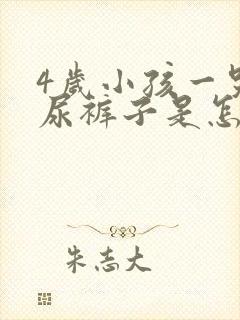 4岁小孩一
尿裤子是怎
朱志大